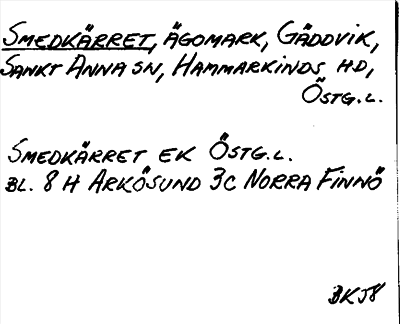 SMEDKÄRRET, ÄGOMARK, GÄDDVIK,
SANKT ANNA SN, HAMMARKINDS HD,
ÖSTG.L.
SMEDKÄRRET EK ÖSTG.L.
BL. 8 H ARKÖSUND 3C NORRA FINNÖ
BKJ8